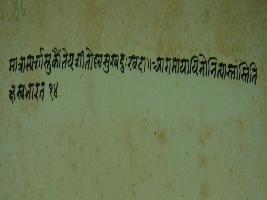 मात्रास्पर्शास्तु कौंतेय शीतोष्णसुखदुःखदाः॥ आगमापायिनोनित्यास्तांस्तिति
क्षस्वभारत १४